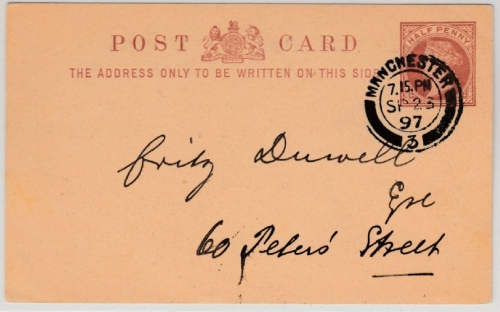 POST CARD
THE ADDRESS ONLY TO BE WRITTEN ON THIS SIDE
HALF PENNY
MANCHESTER
7.15.PM
SP 23
97
3
Fritz Duwell
Esre
60 Peters' Street